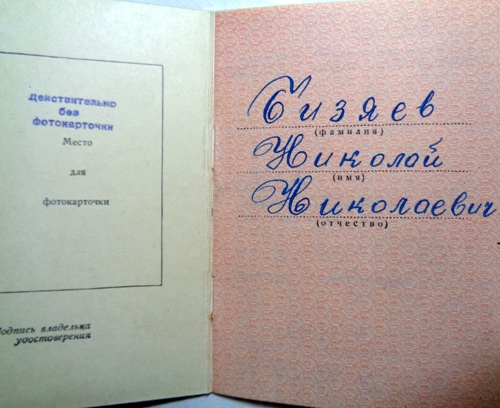 Действительно
без
фотокарточки
Место
для
фотокарточки
Подпись владельца
удостоверения
Сизяев
(фамилия)
Николай
(имя)
Николаевич
(отчество)